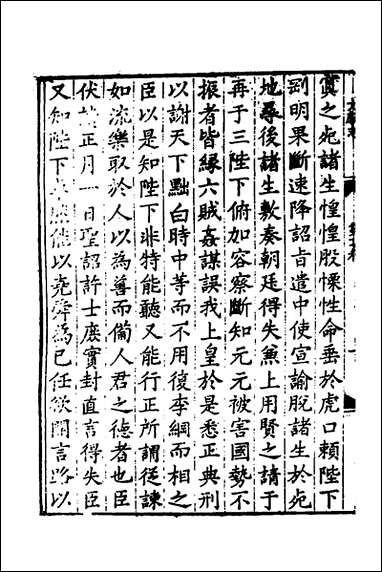 實之死諸生惶惶股慄性命垂於虎口賴陛下
剛明果斷速降詔旨遣中使宣諭脫諸生於死
地尋後諸生敷奏朝廷得失兼上用賢之請于
再于三陛下俯加容察斷知元元被害國勢不
振者皆緣六賊姦謀誤我上皇於是悉正典刑
以謝天下黜白時中等而不用復李綱而相之
臣以是知陛下非特能聽又能行正所謂從諫
如流樂取於人以為善而備人君之德者也臣
伏覩正月一日聖詔許士庶實封直言得失臣
又知陛下 能以堯舜為己任欲開言路以